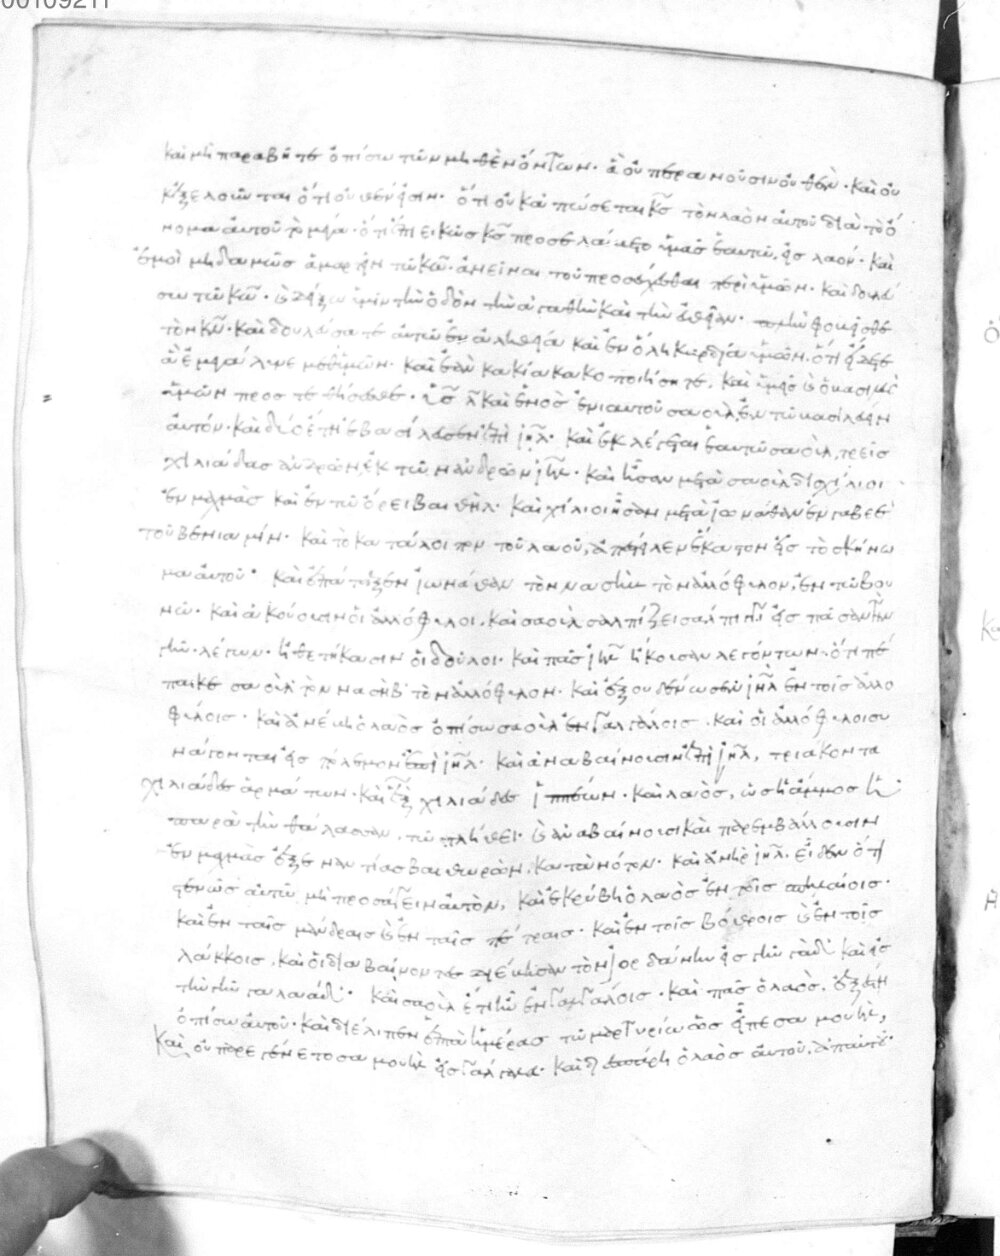 00109211
καὶ μὴ παραβῆτε ὀπίσω τῶν μὴθὲν ὄντων· ἃ οὐ περανοῦσιν οὐθὲν· καὶ οὐκ
ἐξελοῦνται ὅτι οὐθέν εἰσιν· ὅτι οὐκ ἀπώσεται κς τὸν λαὸν αὐτοῦ διὰ τὸ ὄ
νομα αὐτοῦ τὸ μέγα· ὅτι ἐπιεικῶς κς προσελάβετο ὑμᾶς ἑαυτῶ, εἰς λαόν· καὶ
ἐμοὶ μηδαμῶς ἁμαρτεῖν τῶ κω· ἀνεῖναι τοῦ προσεύχεσθαι περὶ ὑμῶν· καὶ δουλεύ
σω τῶ κω· καὶ δείξω ὑμῖν τὴν ὁδὸν τὴν ἀγαθὴν καὶ τὴν εὐθεῖαν· φοβεῖσθε
τὸν κν· καὶ δουλεύσατε αὐτῶ ἐν ἀληθεία καὶ ἐν ὅλη καρδία ὑμῶν· ὅτι εἴδετε
ἃ ἐμεγάλυνε μεθ' ὑμῶν· καὶ ἐὰν κακία κακοποιήσητε, καὶ ὑμεῖς καὶ ὁ βασιλεὺς
ὑμῶν προστεθήσεσθε· καὶ ἑνὸς ἐνιαυτοῦ σαοὺλ, ἐν τῶ βασιλεύειν
αὐτόν· καὶ δύο ἔτη ἐβασίλευσεν ἐπὶ ιηλ· καὶ ἐκλέγεται ἑαυτῶ σαοὺλ, τρεῖς
χιλιάδας ἀνδρῶν, ἐκ τῶν ἀνδρῶν ιηλ· καὶ ἦσαν μετὰ σαοὺλ δισχίλιοι
ἐν μαχμὰς καὶ ἐν τῶ ὄρει βαιθὴλ· καὶ χίλιοι ἦσαν μετὰ ἰωναθαν ἐν γαβεὲ
τοῦ βενιαμίν· καὶ τὸ κατάλοιπον τοῦ λαοῦ, ἀπέστειλεν ἕκαστον εἰς τὸ σκήνω
μα αὐτοῦ· καὶ ἐπάταξεν ἰωνάθαν τὸν νασὶβ τὸν ἀλλόφυλον, ἐν τῶ βου
νῶ· καὶ ἀκούουσιν οἱ ἀλλόφυλοι· καὶ σαοὺλ σαλπίζει σάλπιγγι εἰς πᾶσαν τὴν
γῆν· λέγων· ἠθετήκασιν οἱ δοῦλοι· καὶ πᾶς ιηλ ἤκουσαν λεγόντων· ὅτι πέ
παικε σαοὺλ τὸν νασὴβ τὸν ἀλλόφυλον· καὶ ἐξουδενώθη ιηλ ἐν τοῖς ἀλλο
φύλοις· καὶ ἀνέβη ὁ λαὸς ὀπίσω σαοὺλ ἐν γαλγάλοις· καὶ οἱ ἀλλόφυλοι συ
νάγονται εἰς πόλεμον ἐπὶ ιηλ· καὶ ἀναβαίνουσιν ἐπὶ ιηλ, τριάκοντα
χιλιάδες ἁρμάτων· καὶ ἓξ χιλιάδες ἱππέων· καὶ λαὸς, ὡς ἡ ἄμμος ἡ
παρὰ τὴν θάλασσαν, τῶ πλήθει· καὶ ἀναβαίνουσι καὶ παρεμβάλλουσιν
ἐν μαχμὰς ἐξεναντίας βαιθωρὼν, κατὰ νότον· καὶ ἀνὴρ ιηλ, εἶδεν ὅτι
στενῶς αὐτῶ μὴ προσάγειν αὐτὸν, καὶ ἐκρύβη ὁ λαὸς ἐν τοῖς σπηλαίοις·
καὶ ἐν ταῖς μάνδραις καὶ ἐν ταῖς πέτραις· καὶ ἐν τοῖς βόθροις καὶ ἐν τοῖς
λάκκοις, καὶ οἱ διαβαίνοντες διέβησαν τὸν ἰορδάνην εἰς γῆν γὰδ καὶ εἰς
τὴν γῆν γαλαὰδ· καὶ σαοὺλ ἔτι ἦν ἐν γαλγάλοις· καὶ πᾶς ὁ λαὸς, ἐξέστη
ὀπίσω αὐτοῦ· καὶ διέλιπεν ἑπτὰ ἡμέρας τῶ μαρτυρίω ὡς εἶπε σαμουὴλ,
Καὶ οὐ παρεγένετο σαμουὴλ εἰς γάλγαλα· καὶ διεσπάρη ὁ λαὸς αὐτοῦ, ἀπ αὐτοῦ·